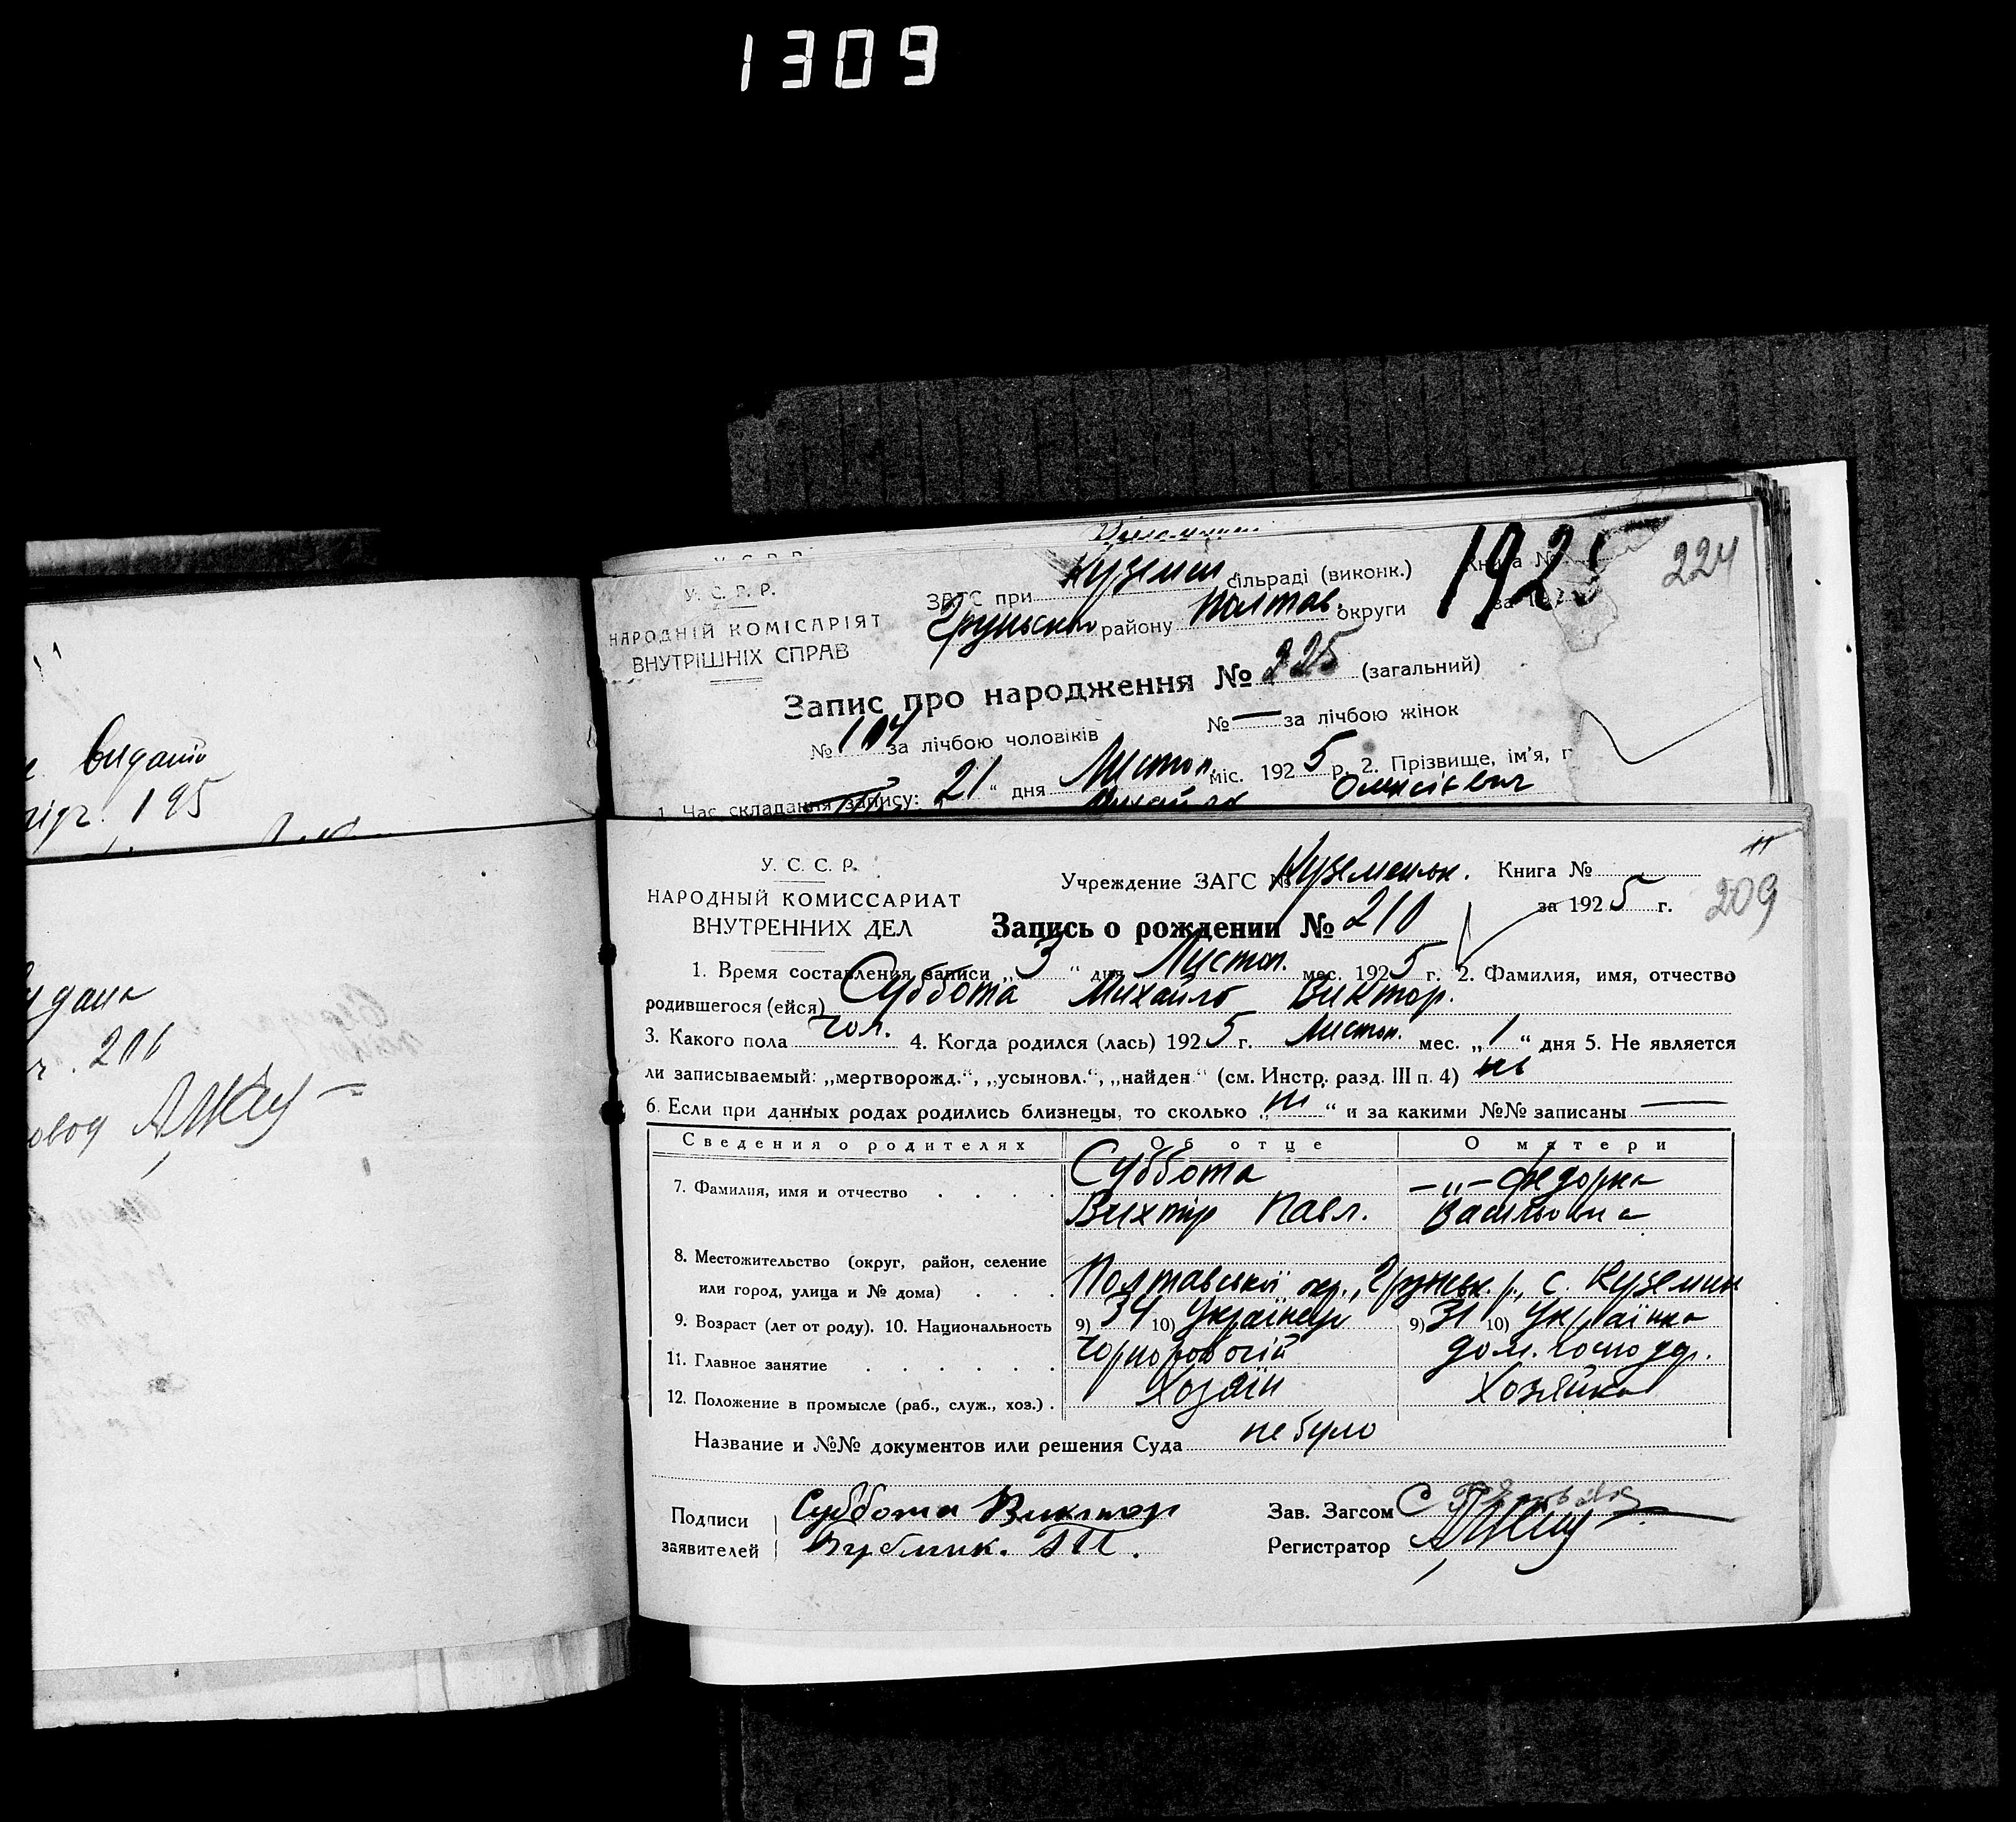 1309
видано
195
206
224
У. С. Р. Р.
НАРОДНІЙ КОМІСАРІЯТ
ВНУТРІШНІХ СПРАВ
ЗАГС при Куземен. сільраді (виконк.) Книга № 1925
Груньськ району Полтав. округи за 192
Запис про народження № 225 (загальний)
№ 104 за лічбою чоловіків № — за лічбою жінок
1. Час складання запису: 21 " дня Листоп. міс. 1925 р. 2. Прізвище, ім'я, г
У. С. С. Р.
НАРОДНЫЙ КОМИССАРИАТ
ВНУТРЕННИХ ДЕЛ
Учреждение ЗАГС № Куземенськ. Книга №
за 1925 г. 209
Запись о рождении № 210
1. Время составления записи „ 3 " дня Листоп. мес. 1925 г. 2. Фамилия, имя, отчество
родившегося (ейся) Суббота Михайло Виктор.
3. Какого пола чол. 4. Когда родился (лась) 1925 г. Листоп. мес. „ 1 " дня 5. Не является
ли записываемый: „мертворожд.", „усыновл.", „найден" (см. Инстр. разд. III п. 4) ні
6. Если при данных родах родились близнецы, то сколько „ ні " и за какими №№ записаны —
Сведения о родителях Об отце О матери
7. Фамилия, имя и отчество Суббота Вихтір Павл. —„— Федорка Васильовна
8. Местожительство (округ, район, селение
или город, улица и № дома) Полтавської окр., Груньськ. р., с. Куземин
9. Возраст (лет от роду). 10. Национальность 9) 34 10) Українець 9) 31 10) Українка
11. Главное занятие Чорноробочій дом. господар.
12. Положение в промысле (раб., служ., хоз.) Хозяїн Хозяйка
Название и №№ документов или решения Суда не було
Подписи заявителей Суббота Виктор
Зав. Загсом
Регистратор